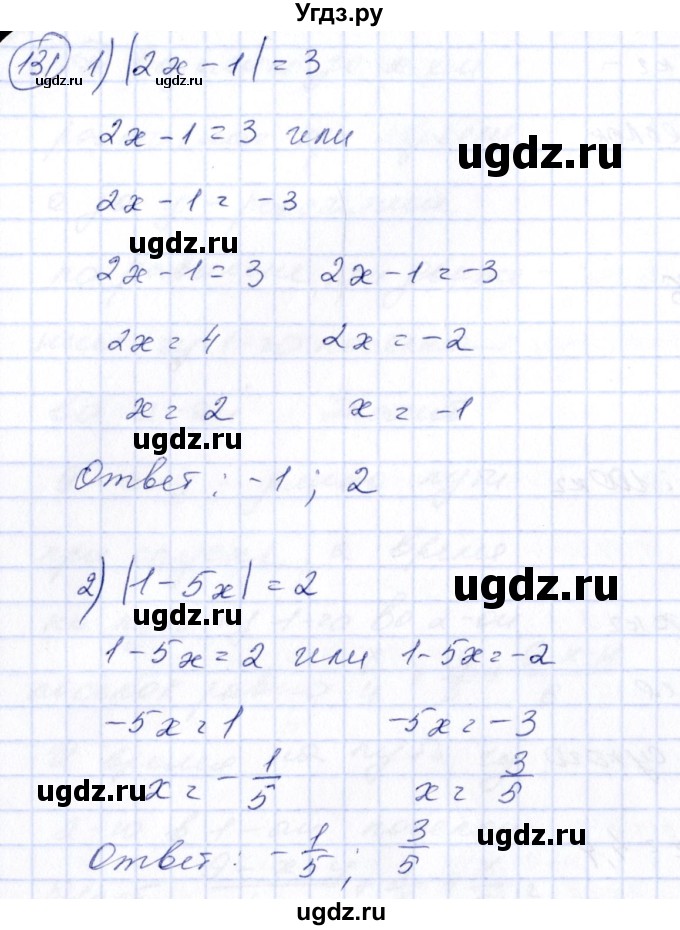 Угдз.ру
131 1) |2x - 1| = 3
2x - 1 = 3 или
2x - 1 = -3
2x - 1 = 3 2x - 1 = -3
2x = 4 2x = -2
x = 2 x = -1
Ответ: -1; 2
2) |1 - 5x| = 2
1 - 5x = 2 или 1 - 5x = -2
-5x = 1 -5x = -3
x = -1/5 x = 3/5
Ответ: -1/5; 3/5
ugdz.ru
ugdz.ru
ugdz.ru
ugdz.ru
ugdz.ru
ugdz.ru
ugdz.ru
ugdz.ru
ugdz.ru
ugdz.ru
ugdz.ru